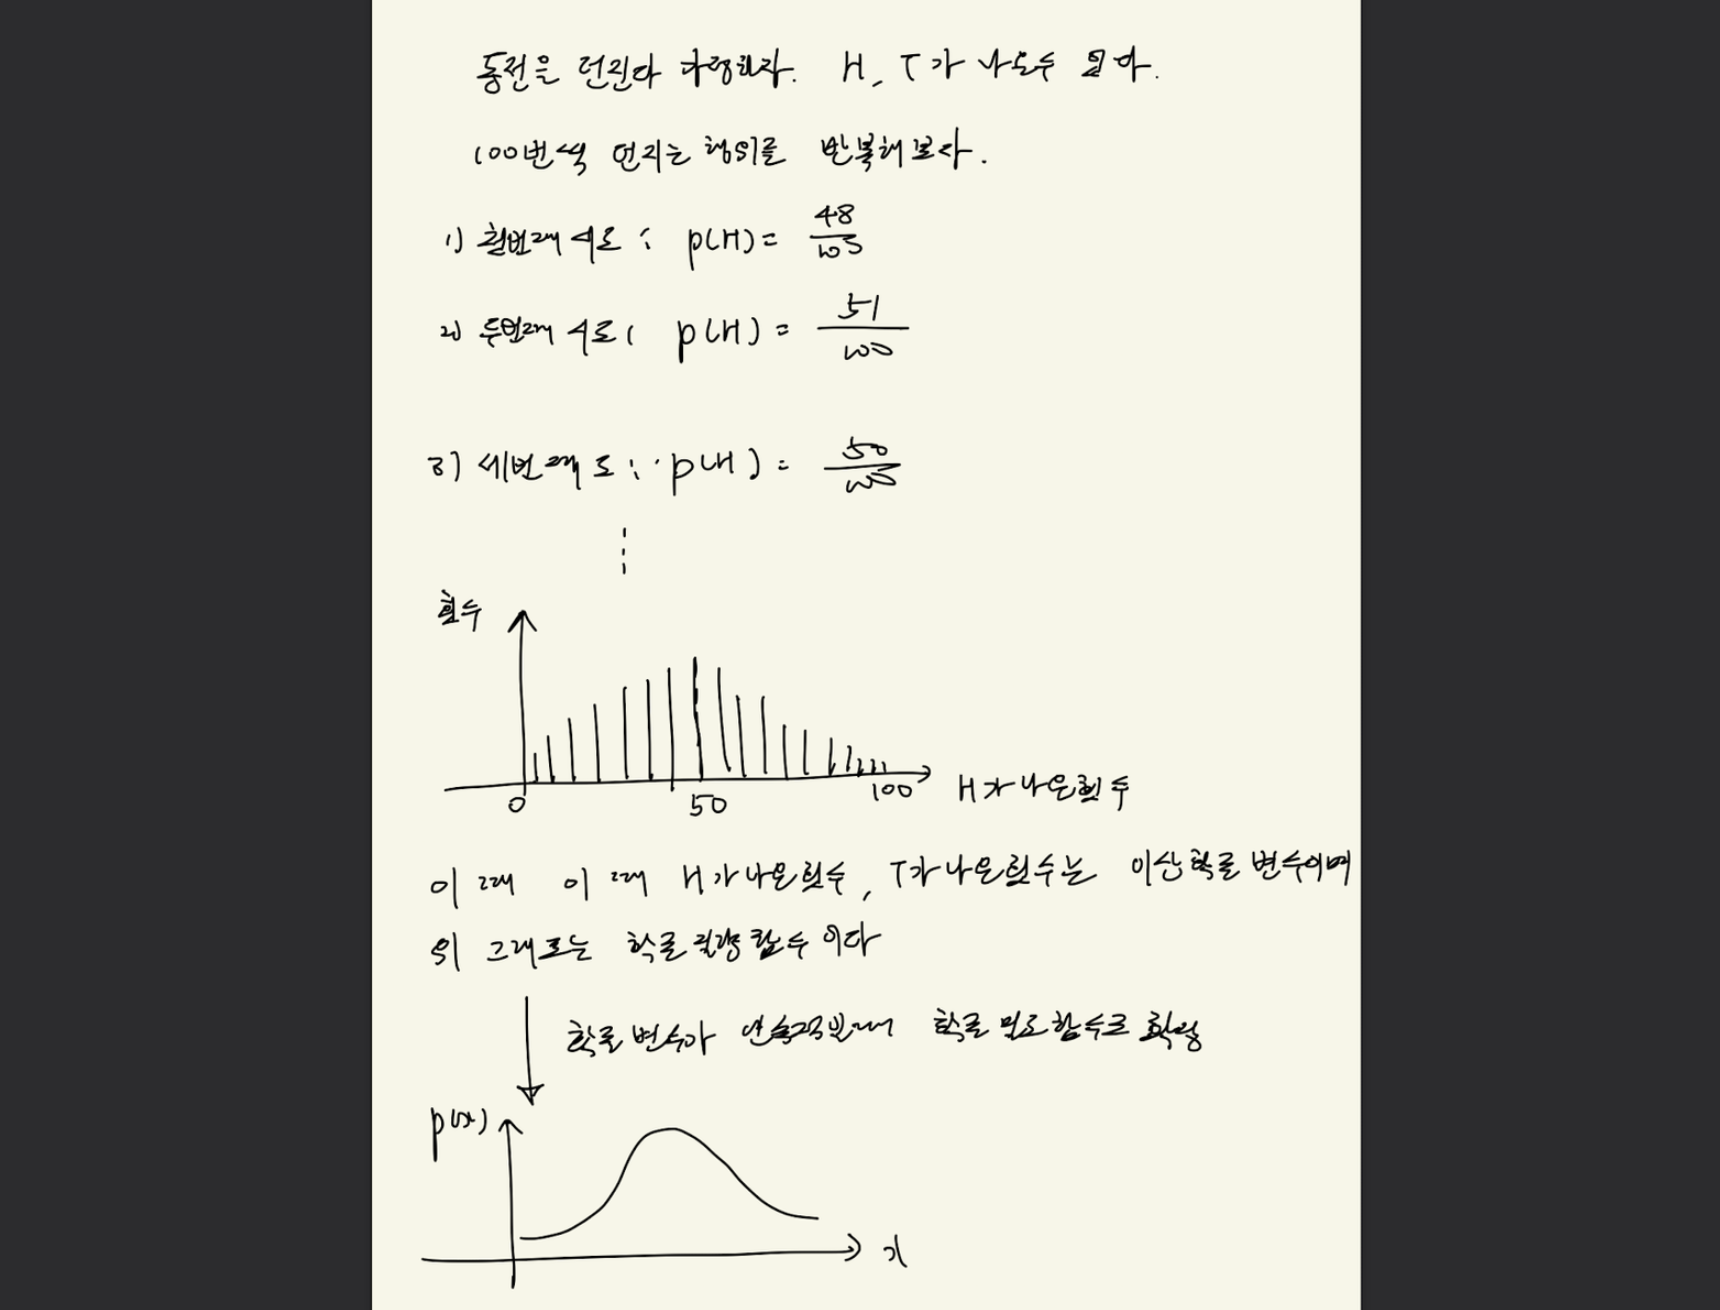 동전을 던진다 가정하자. H, T가 나올수 있다.
100번씩 던지는 행위를 반복해보자.
1) 첫번째 시도 : p(H) = 48/100
2) 두번째 시도 : p(H) = 51/100
3) 세번째 도 : p(H) = 50/100
횟수
0 50 100 H가 나온횟수
이 때 이 때 H가 나온횟수, T가 나온횟수는 이산확률 변수이며
위 그래프는 확률 질량 함수이다
확률 변수가 연속적일때 확률 밀도 함수로 확장
p(x)
x